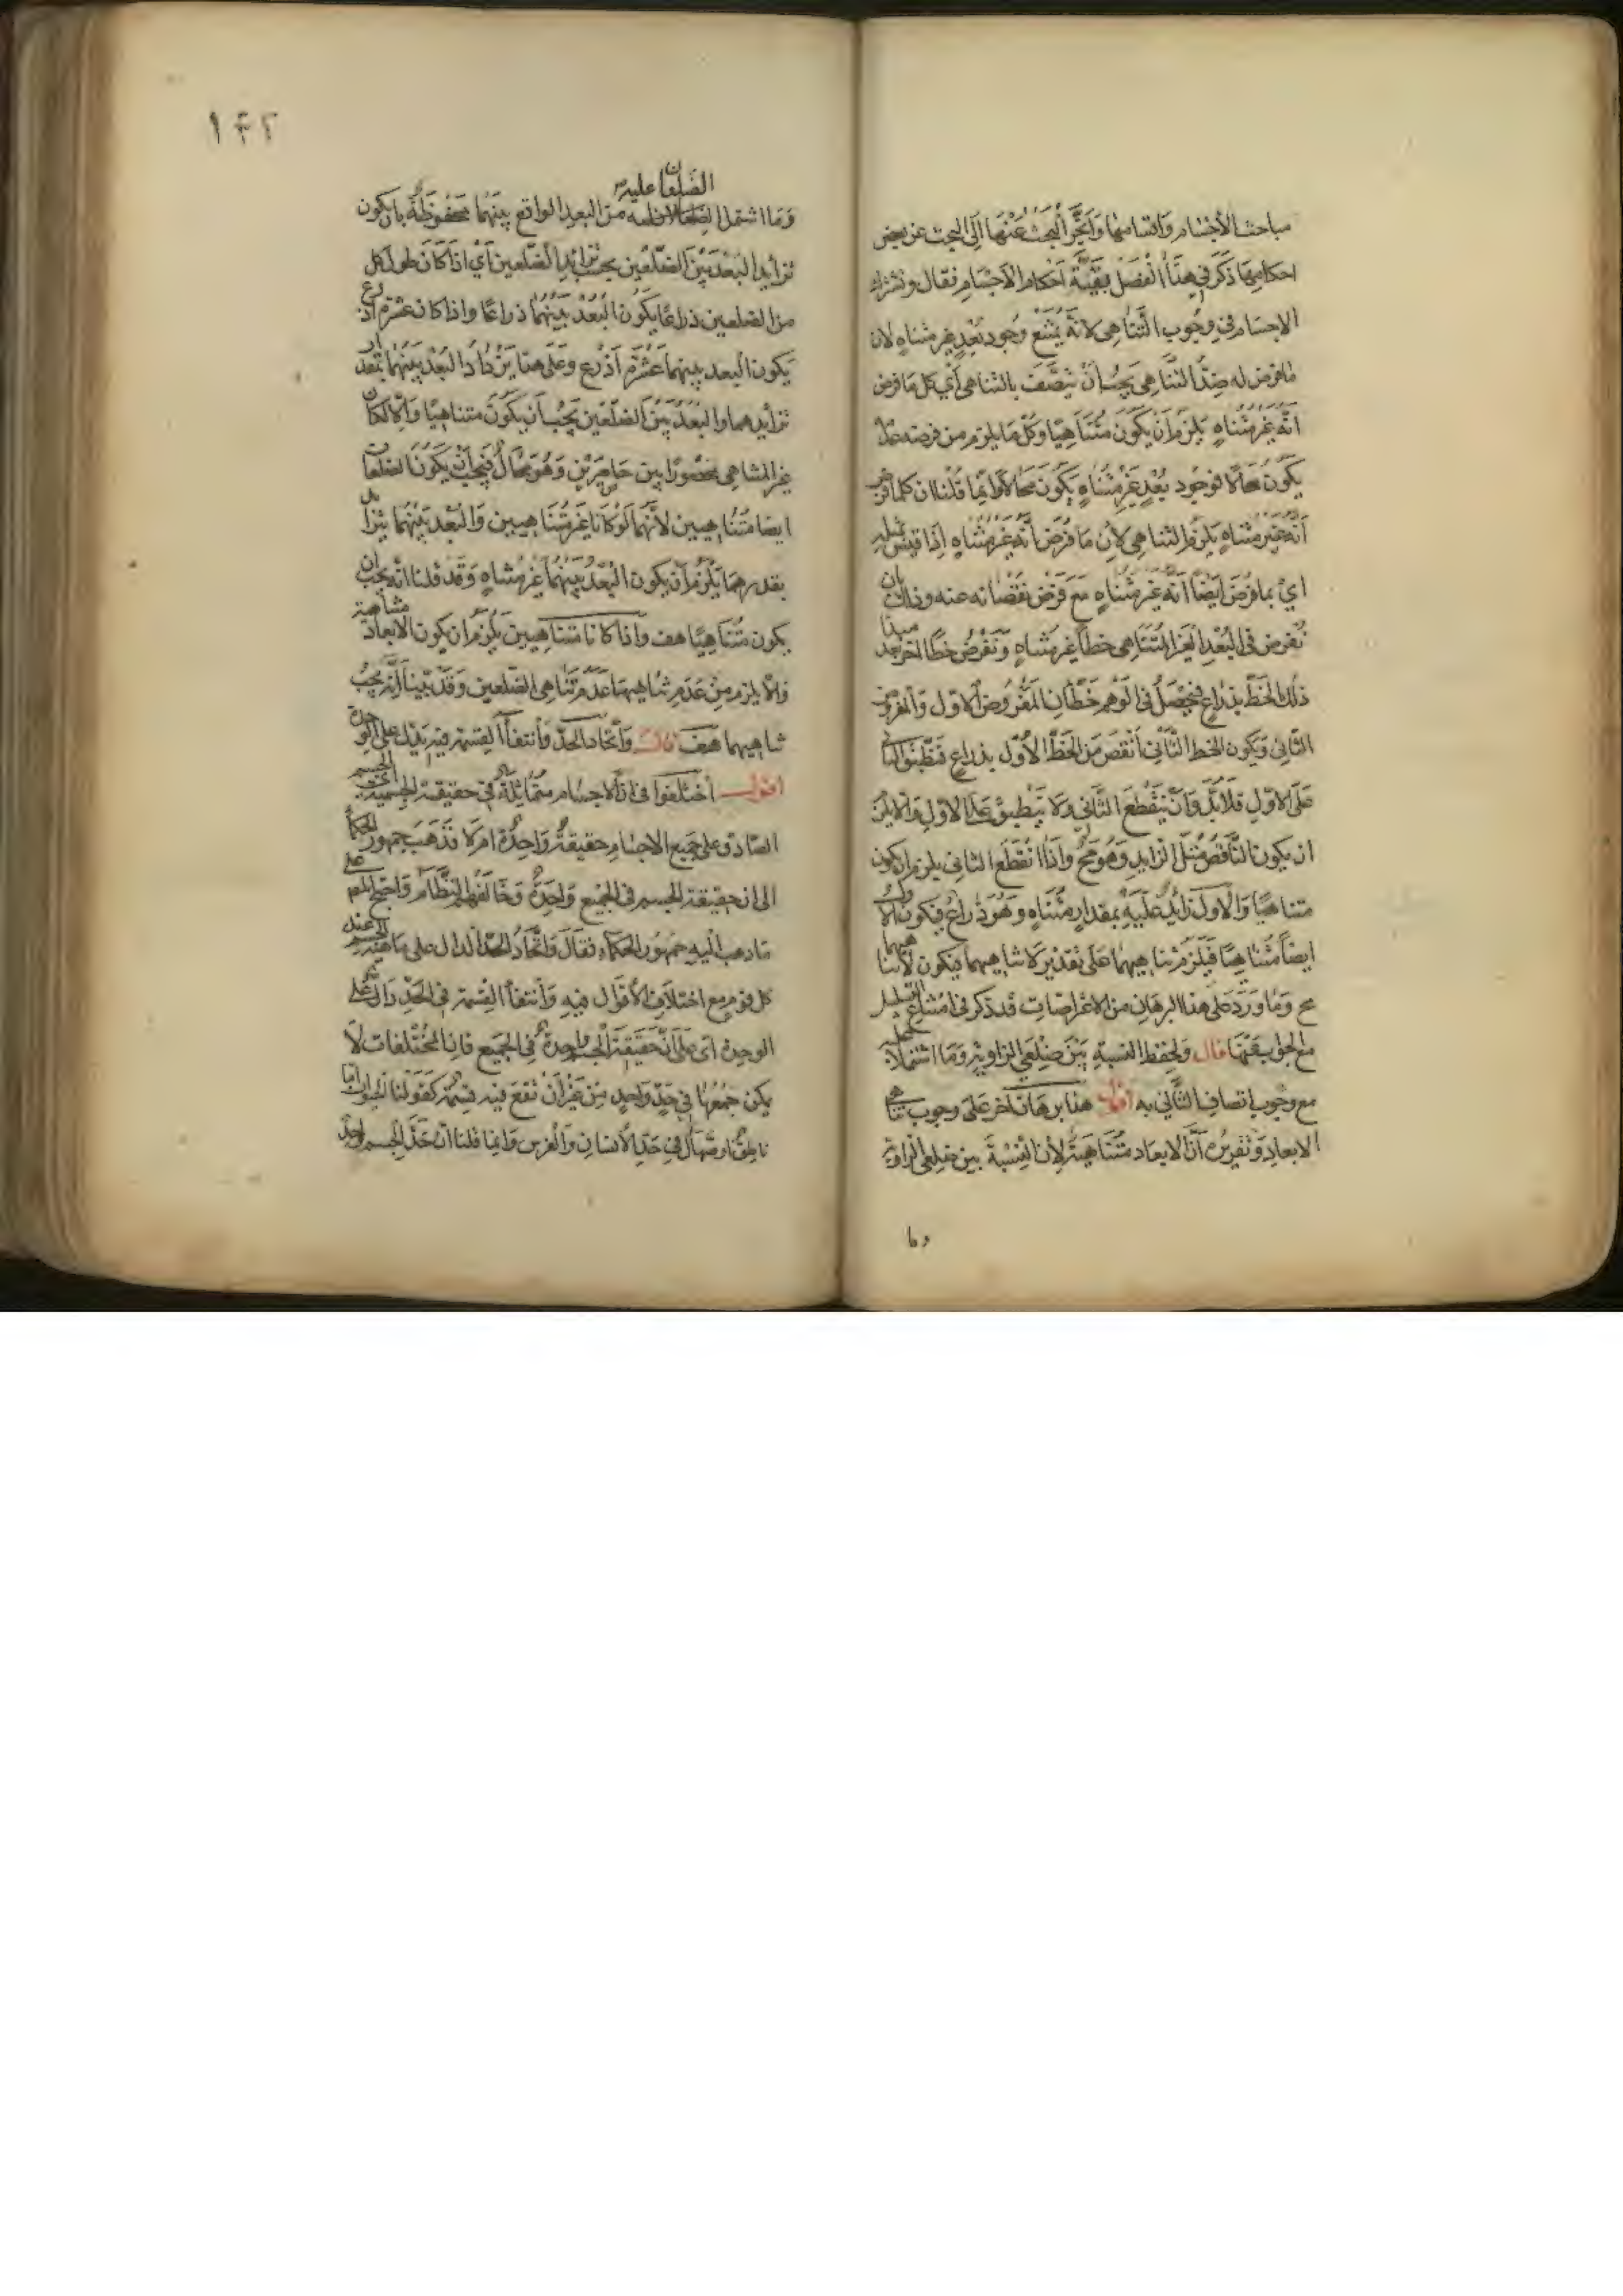 مباحث الأجسام واقسامها وانجر البحث عنها الى البحث عن بعض
احكامها ذكر في هذا الفصل بقية احكام الاجسام فقال وتشترك
الاجسام في وجوب التناهي لانه يمتنع وجود بعد غير متناه لان
مافرض له ضد التناهي يجب ان يتصف بالتناهي أي كل ما فرض
انه غير متناه يلزم أن يكون متناهيا وكل ما يلزم من فرضه عدمه
يكون محالا فوجود بعد غير متناه يكون محالا وانما قلنا ان كلما فرض
أنه غير متناه يلزم التناهي لان ما فرض أنه غير متناه اذا قيس بمثله
اي بما فرض ايضا انه غير متناه مع فرض نقصانه عنه وذلك بان
نفرض في البعد الغير المتناهي خطا غير متناه ونفرض خطا اخر مبدأ بعد
ذلك الخط بذراع فيحصل في الوهم خطان المفروض الاول والمفروض
الثاني ويكون الخط الثاني انقص من الخط الأول بذراع فنطبق الثاني
على الاول فلابد وان ينقطع الثاني ولا ينطبق على الاول والا يلزم
ان يكون الناقص مثل الزايد وهو مح واذا انقطع الثاني يلزم ان يكون
متناهيا والاول زايد عليه بمقدار متناه وهو ذراع فيكون الاول
ايضا متناهيا فيلزم تناهيهما على تقدير لا تناهيهما فيكون لا تناهيهما
مح وما ورد على هذا البرهان من الاعراضات قد ذكر في امتناع التسلسل
مع الجواب عنها قال ولحفظ النسبة بين ضلعي الزاوية وما اشتملا عليه
مع وجوب اتصاف الثاني به اقول هذا برهان آخر على وجوب تناهي
الابعاد وتقريره أن الابعاد متناهية لأن النسبة بين ضلعي الزاوية
وما
١٤٢
الضلعان عليه
وما اشتمل من البعد الواقع بينهما محفوظة بان يكون
تزايد البعد بين الضلعين بحسب تزايد الضلعين أي اذا كان طول كل
من الضلعين ذراعا يكون البعد بينهما ذراعا واذا كان عشرة اذرع
يكون البعد بينهما عشرة أذرع وعلى هذا يزداد البعد بينهما بقدر
تزايدهما والبعد بين الضلعين يجب أن يكون متناهيا والا لكان
غير المتناهي محصورا بين حاصرين وهو محال فيجب أن يكون الضلعان
ايضا متناهيين لأنهما لو كانا غير متناهيين والبعد بينهما يتزايد
بقدرهما يلزم أن يكون البعد بينهما غير متناه وقد قلنا انه يجب ان
يكون متناهيا هف واذا كانا متناهيين يلزم ان يكون الابعاد متناهية
والا يلزم من عدم تناهيها عدم تناهي الضلعين وقد بينا انه يجب
تناهيهما هف قال واتحاد الحد وانتفاء القسمة فيه يدل على الوحدة
اقول اختلفوا في ان الاجسام متماثلة في حقيقة الجسمية
الصادق على جميع الاجسام حقيقة واحدة ام لا فذهب جمهور الحكماء
الى ان حقيقة الجسم في الجميع واحدة وخالفهم النظام واحتج المص على
ما ذهب اليه جمهور الحكماء فقال واتحاد الحد الدال على ماهية الجسم عند
كل قوم مع اختلاف الأقوال فيه وانتفاء القسمة في الحد دال على
الوحدة أي على أن حقيقة الجسم واحدة في الجميع فان المختلفات لا
يمكن جمعها في حد واحد من غير أن تقع فيه قسمة كقولنا الحيوان اما
ناطق او صهال في حد الانسان والفرس وانما قلنا ان حد الجسم واحد